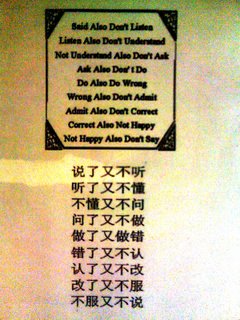 Said Also Don't Listen
Listen Also Don't Understand
Not Understand Also Don't Ask
Ask Also Don't Do
Do Also Do Wrong
Wrong Also Don't Admit
Admit Also Don't Correct
Correct Also Not Happy
Not Happy Also Don't Say
说了又不听
听了又不懂
不懂又不问
问了又不做
做了又做错
错了又不认
认了又不改
改了又不服
不服又不说